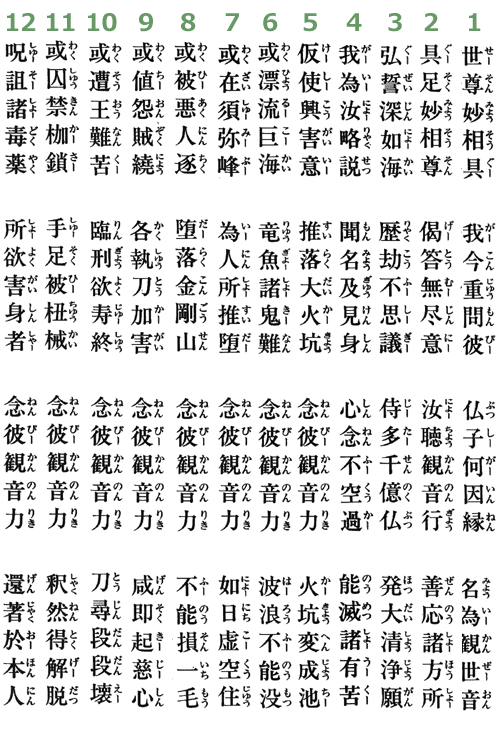 1 世尊妙相具 我今重問彼 仏子何因縁 名為観世音
2 具足妙相尊 偈答無尽意 汝聴観音行 善応諸方所
3 弘誓深如海 歴劫不思議 侍多千億仏 発大清浄願
4 我為汝略説 聞名及見身 心念不空過 能滅諸有苦
5 仮使興害意 推落大火坑 念彼観音力 火坑変成池
6 或漂流巨海 竜魚諸鬼難 念彼観音力 波浪不能没
7 或在須弥峰 為人所推堕 念彼観音力 如日虚空住
8 或被悪人逐 堕落金剛山 念彼観音力 不能損一毛
9 或値怨賊繞 各執刀加害 念彼観音力 咸即起慈心
10 或遭王難苦 臨刑欲寿終 念彼観音力 刀尋段段壊
11 或囚禁枷鎖 手足被杻械 念彼観音力 釈然得解脱
12 呪詛諸毒薬 所欲害身者 念彼観音力 還著於本人